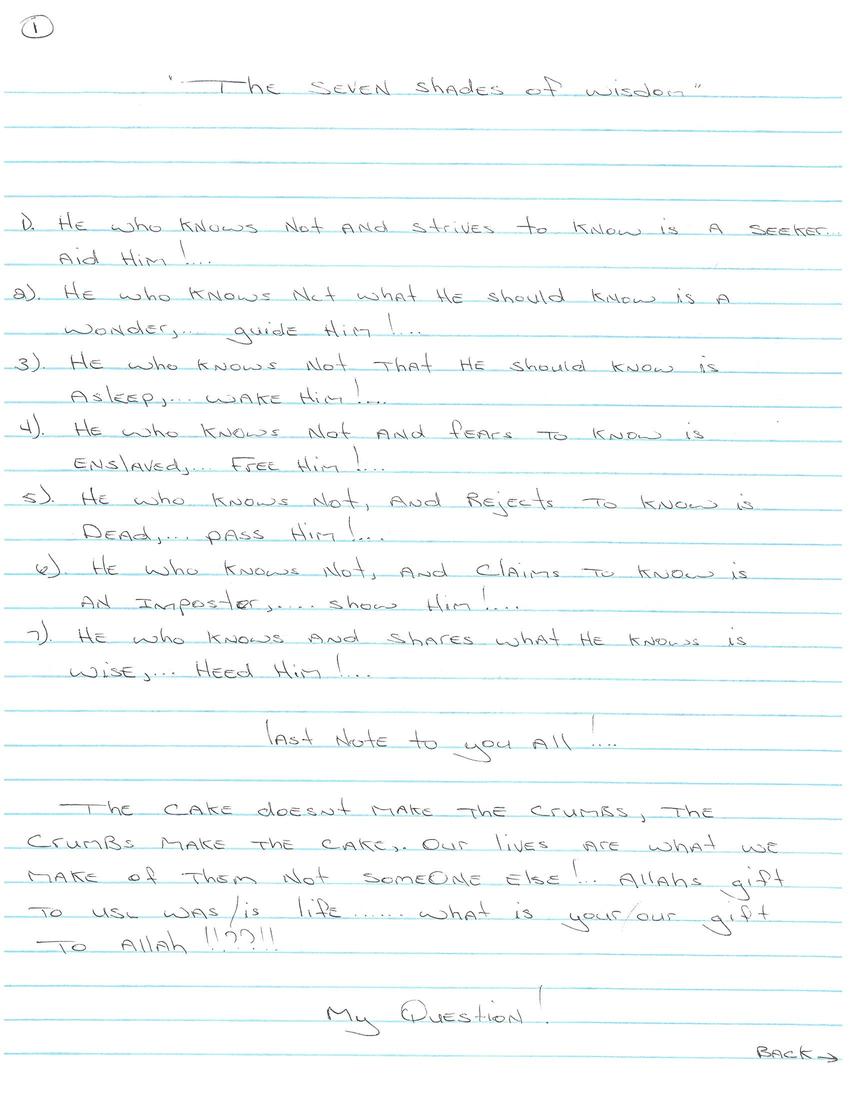 1
"The SEVEN Shades of wisdom"
1). HE who KNOWS Not AND strives to KNOW is A SEEKER...
Aid Him!...
2). HE who KNOWS Not what HE should KNOW is A
WONDER,... guide Him!...
3). HE who KNOWS Not THAT HE should KNOW is
AslEEp,... WAKE Him!...
4). HE who KNOWS Not AND fEArs TO KNOW is
ENslAvEd,... FREE Him!...
5). HE who KNOWS Not, AND REjects TO KNOW is
DEAD,... pASS Him!...
6). HE who KNOWS Not, AND ClAims TO KNOW is
AN Imposter,.... show Him!....
7). HE who KNOWS AND shARES whAt HE KNOWS is
wisE,... HEED Him!...
lAst NotE to you All!....
ThE CAKE doesnt MAKE THE CrumBs, THE
CrumBs MAKE THE CAKE,. Our lives ArE what wE
MAKE of THEM Not SomEONE ElsE!... AllAhs gift
TO us WAS/is life...... whAt is your/our gift
TO AllAh!!??!!
My QuEstion!
BACK →